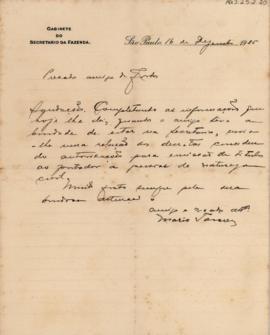 GABINETE
DO
SECRETARIO DA FAZENDA.
São Paulo, 16 de Dezembro 1925
Prezado amigo
Saudações. Completando as informações que
hoje lhe dei, quando o amigo teve a
bondade de estar na Secretaria, envio-
lhe uma relação dos decretos
do autorisação para emissão de titulos
ao portador a pessoas de natureza
civil.
Muito grato sempre pela sua
amigo
Mario Tavares